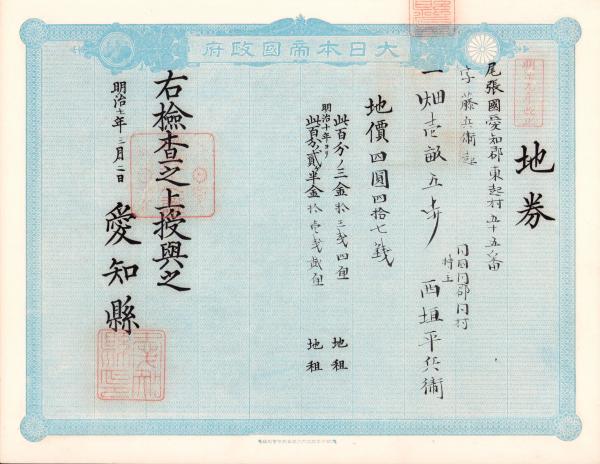 大日本帝國政府
地券
明治九年改正
尾張國愛知郡東起村五十五番
字藤五衛起
一畑壱畝五歩
同國同郡同村
持主
西垣平兵衛
地價四圓四拾七銭
此百分ノ三金拾三銭四厘 地租
明治十年ヨリ
此百分ノ貳半金拾壱銭貳厘 地租
右檢査之上授與之
明治十一年三月二日
愛知縣